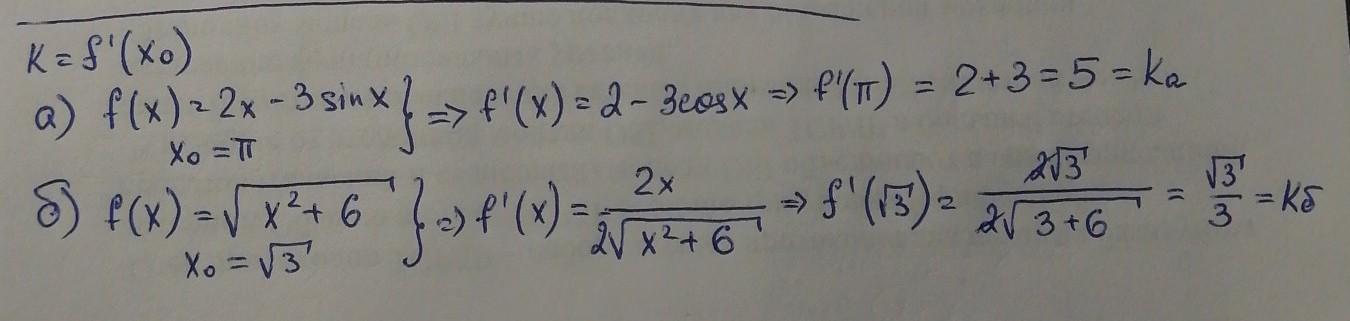 K = f'(x₀)
а) f(x) = 2x - 3sinx } => f'(x) = 2 - 3cosx => f'(π) = 2+3 = 5 = kа
x₀ = π
б) f(x) = √(x²+6) } => f'(x) = 2x / 2√(x²+6) => f'(√3) = 2√3 / 2√(3+6) = √3/3 = Kб
x₀ = √3